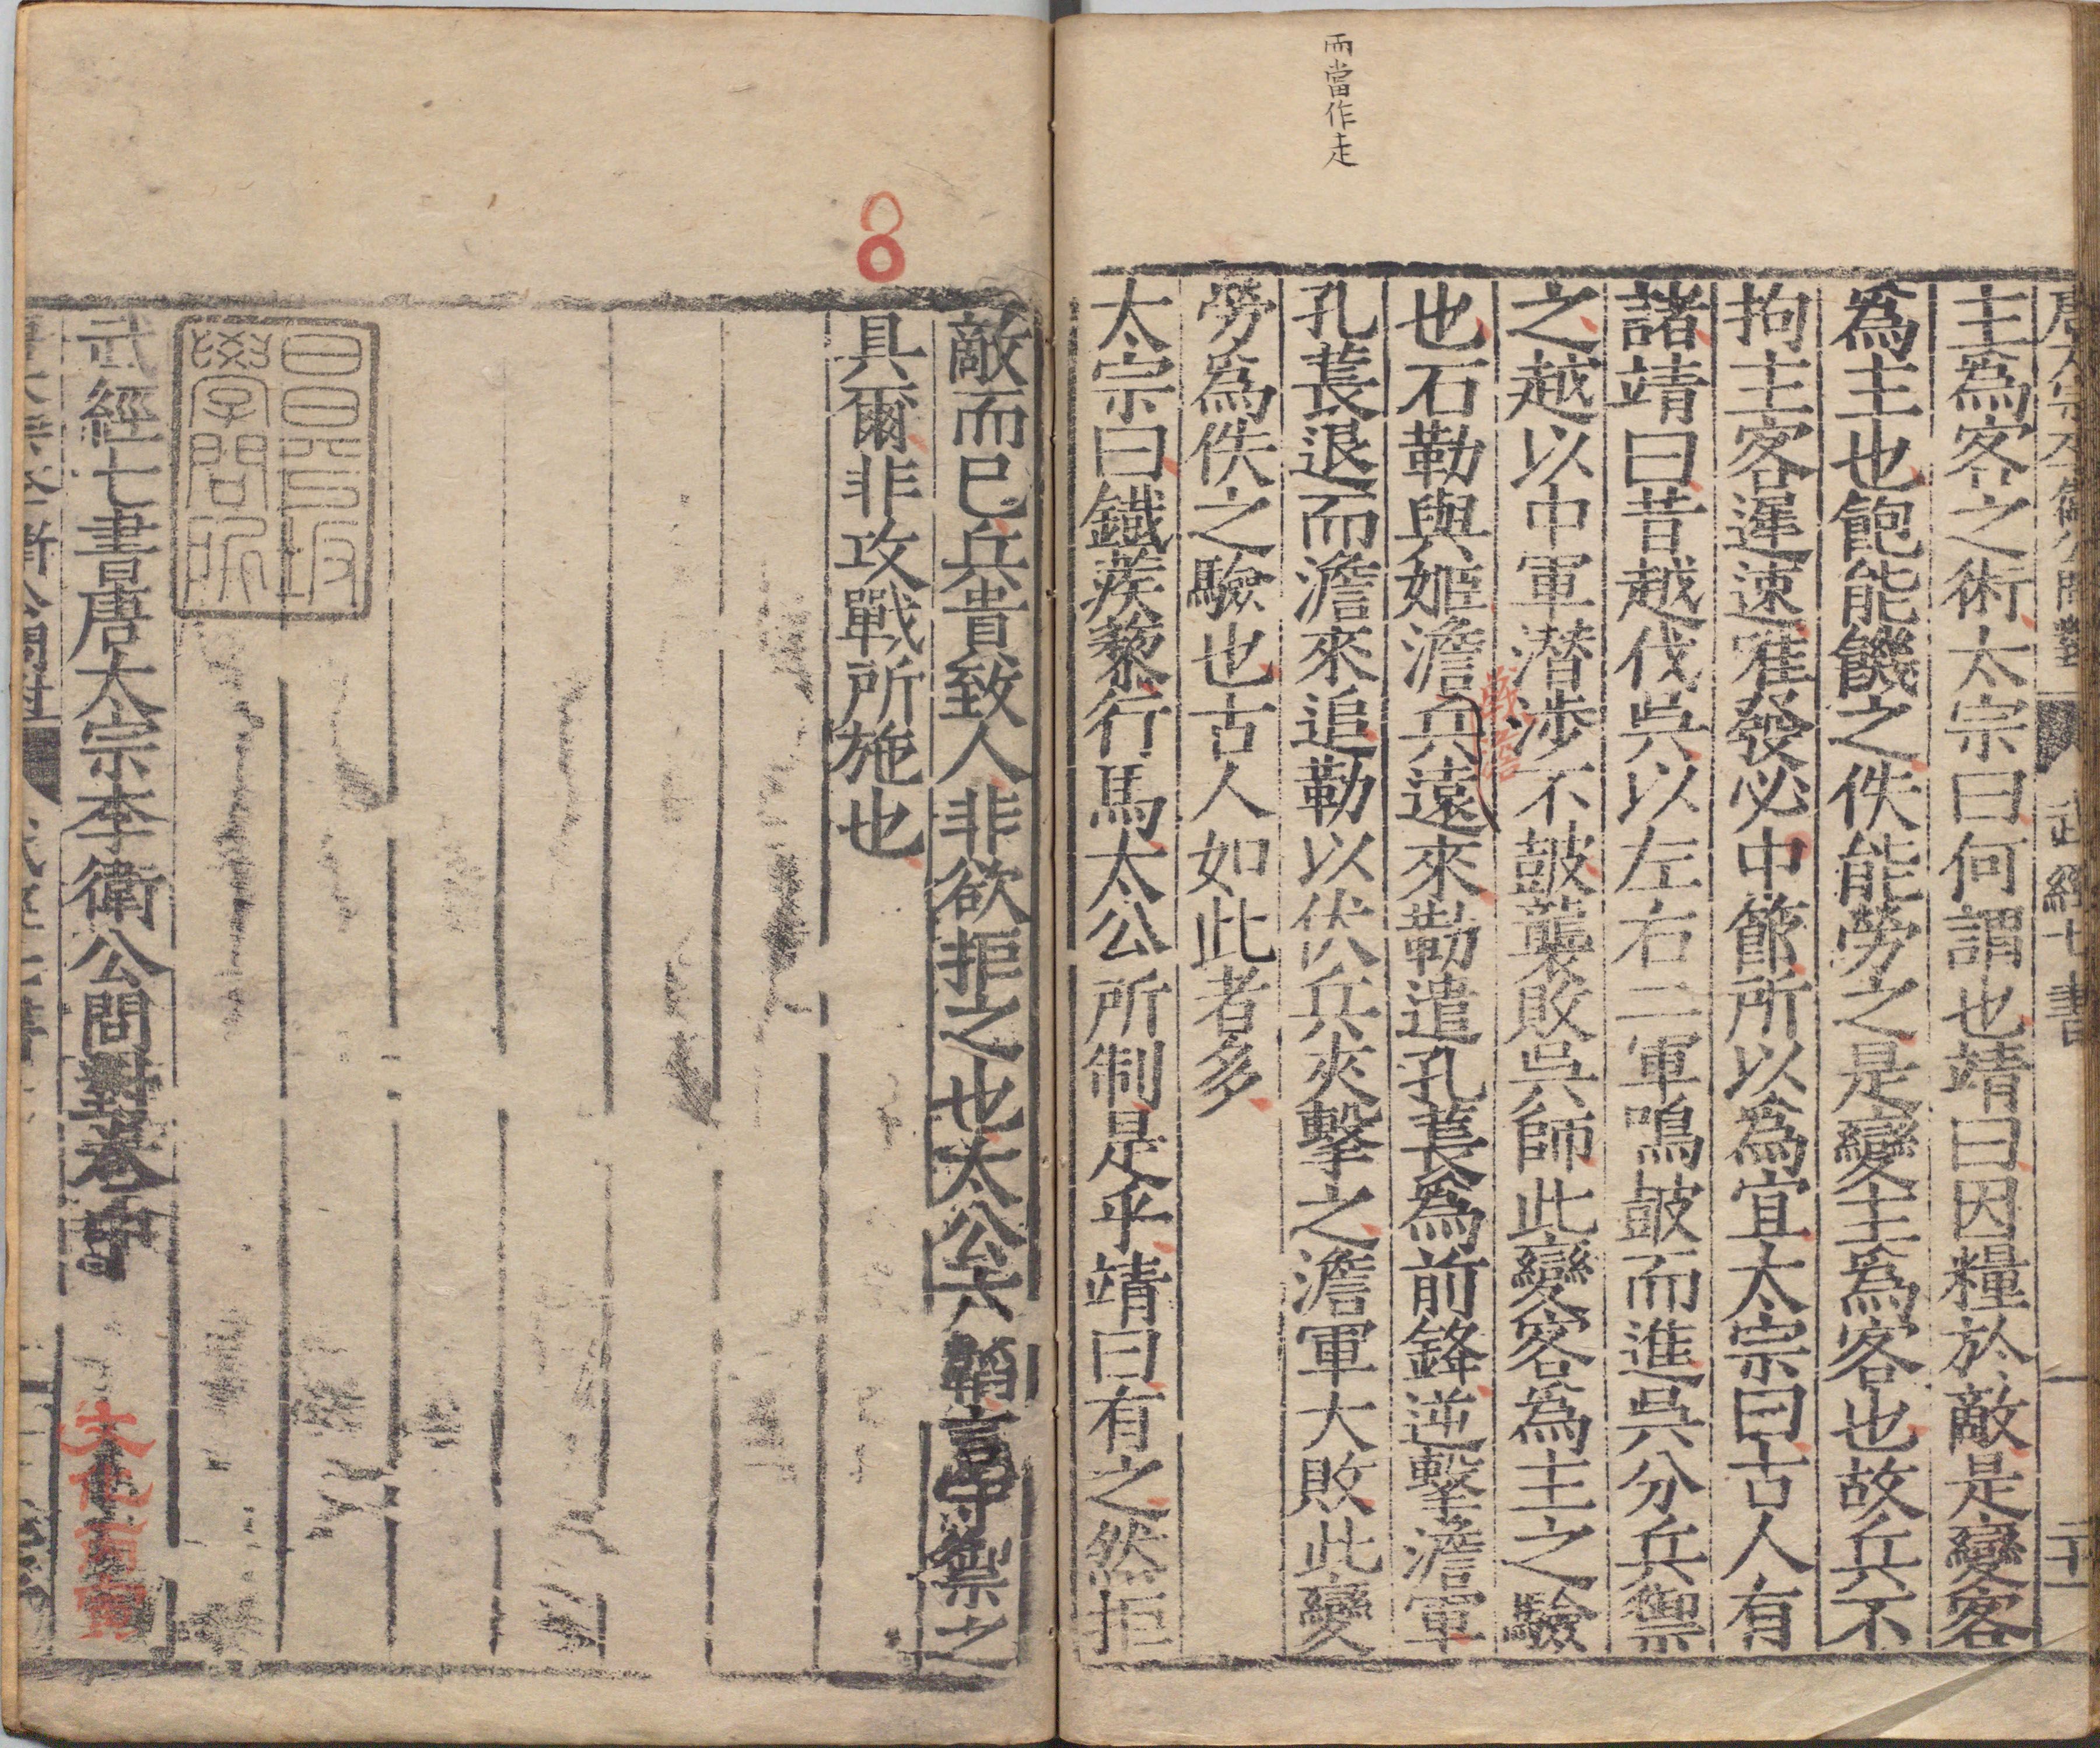 而當作走
唐太宗李衛公問對 武經七書 二十一
主為客之術太宗曰何謂也靖曰因糧於敵是變客
為主也飽能饑之佚能勞之是變主為客也故兵不
拘主客遲速唯發必中節所以為宜太宗曰古人有
諸靖曰昔越伐吳以左右二軍鳴皷而進吳分兵禦
之越以中軍潜涉不皷襲敗吳師此變客為主之驗
也石勒與姬澹兵遠來勒遣孔萇為前鋒逆擊澹軍
孔萇退而澹來追勒以伏兵夾擊之澹軍大敗此變
勞為佚之驗也古人如此者多
太宗曰鐵蒺藜行馬太公所制是乎靖曰有之然拒
敵而已兵貴致人非欲拒之也太公六韜言守禦之
具爾非攻戰所施也
昌平坂
學問所
武經七書唐太宗李衛公問對卷中
文化